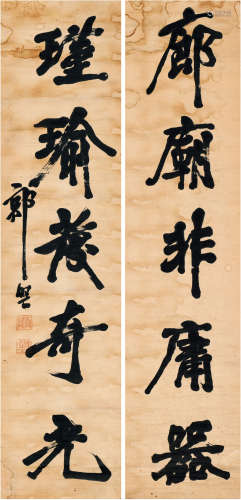 廊廟非庸器
瑾瑜發奇光
郭堅